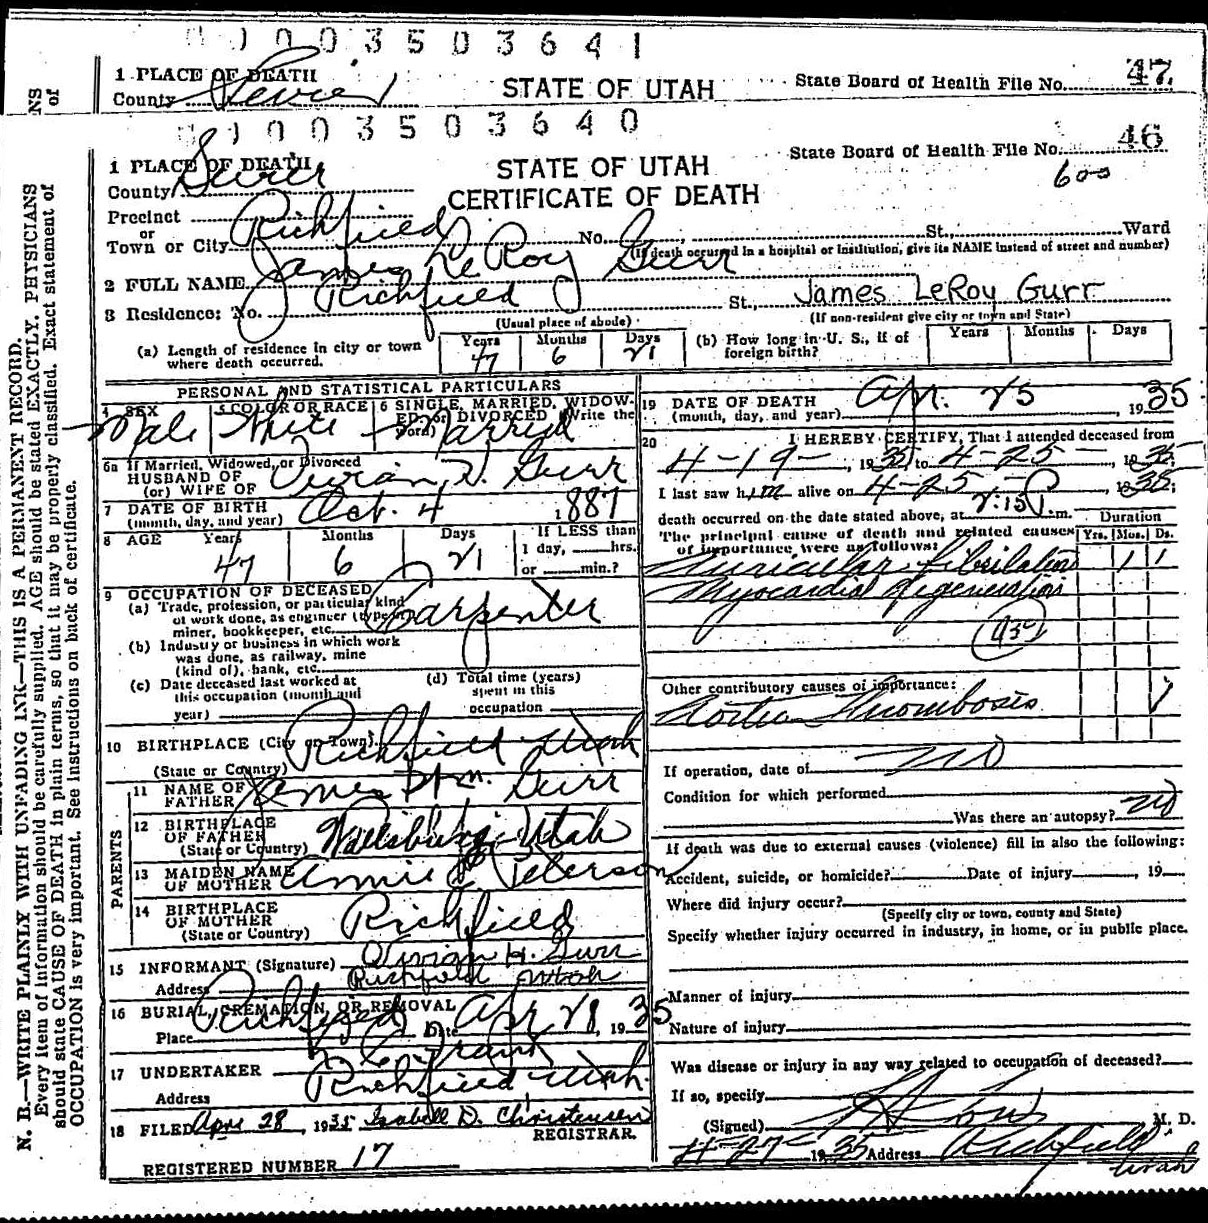 0 0 0 0 3 5 0 3 6 4 1
1 PLACE OF DEATH
STATE OF UTAH
State Board of Health File No. 47
County Sevier
0 0 0 0 3 5 0 3 6 4 0
46
1 PLACE OF DEATH
STATE OF UTAH
State Board of Health File No.
County Sevier
CERTIFICATE OF DEATH
600
Precinct
or
Town or City Richfield No. St., Ward
(If death occurred in a hospital or institution, give its NAME instead of street and number)
2 FULL NAME James LeRoy Gurr
3 Residence: No. Richfield St., James LeRoy Gurr
(Usual place of abode)
(If non-resident give city or town and State)
(a) Length of residence in city or town where death occurred. Years 47 Months 6 Days 21
(b) How long in U. S., if of foreign birth? Years Months Days
PERSONAL AND STATISTICAL PARTICULARS
4 SEX Male
5 COLOR OR RACE White
6 SINGLE, MARRIED, WIDOWED, or DIVORCED (Write the word) Married
6a If Married, Widowed, or Divorced
HUSBAND OF
(or) WIFE OF Vivian H. Gurr
7 DATE OF BIRTH
(month, day, and year) Oct. 4 1887
8 AGE Years 47 Months 6 Days 21
If LESS than
1 day, hrs.
or min.?
9 OCCUPATION OF DECEASED
(a) Trade, profession, or particular kind
of work done, as engineer (type in
miner, bookkeeper, etc. Carpenter
(b) Industry or business in which work
was done, as railway, mine
(kind of), bank, etc.
(c) Date deceased last worked at
this occupation (month and
year)
(d) Total time (years)
spent in this
occupation
10 BIRTHPLACE (City or Town) Richfield Utah
(State or Country)
PARENTS
11 NAME OF
FATHER James Wm. Gurr
12 BIRTHPLACE
OF FATHER
(State or Country) Wallsburg, Utah
13 MAIDEN NAME
OF MOTHER Annie Peterson
14 BIRTHPLACE
OF MOTHER
(State or Country) Richfield
15 INFORMANT (Signature) Vivian H. Gurr
Address Richfield Utah
16 BURIAL, CREMATION, OR REMOVAL
Place Richfield Date Apr 28, 1935
17 UNDERTAKER
Address Richfield Utah.
18 FILED Apr 28, 1935 Isabell D. Christensen
REGISTRAR.
REGISTERED NUMBER 17
19 DATE OF DEATH
(month, day, and year) Apr. 25 1935
20 I HEREBY CERTIFY, That I attended deceased from
4-19-, 1935 to 4-25-, 1935
I last saw him alive on 4-25-, 1935;
death occurred on the date stated above, at 2:15 P.m.
The principal cause of death and related causes
of importance were as follows:
Duration
Yrs. Mos. Ds.
Auricular fibrilation 1 1
Myocardial degeneration
Other contributory causes of importance:
Aortia Thrombosis 1
If operation, date of no
Condition for which performed
Was there an autopsy? no
If death was due to external causes (violence) fill in also the following:
Accident, suicide, or homicide? Date of injury, 19
Where did injury occur?
(Specify city or town, county and State)
Specify whether injury occurred in industry, in home, or in public place.
Manner of injury
Nature of injury
Was disease or injury in any way related to occupation of deceased?
If so, specify
(Signed) M. D.
4-27- 1935 Address Richfield
Utah
NS
of
N. B.—WRITE PLAINLY WITH UNFADING INK—THIS IS A PERMANENT RECORD.
Every item of information should be carefully supplied. AGE should be stated EXACTLY. PHYSICIANS
should state CAUSE OF DEATH in plain terms, so that it may be properly classified. Exact statement of
OCCUPATION is very important. See instructions on back of certificate.